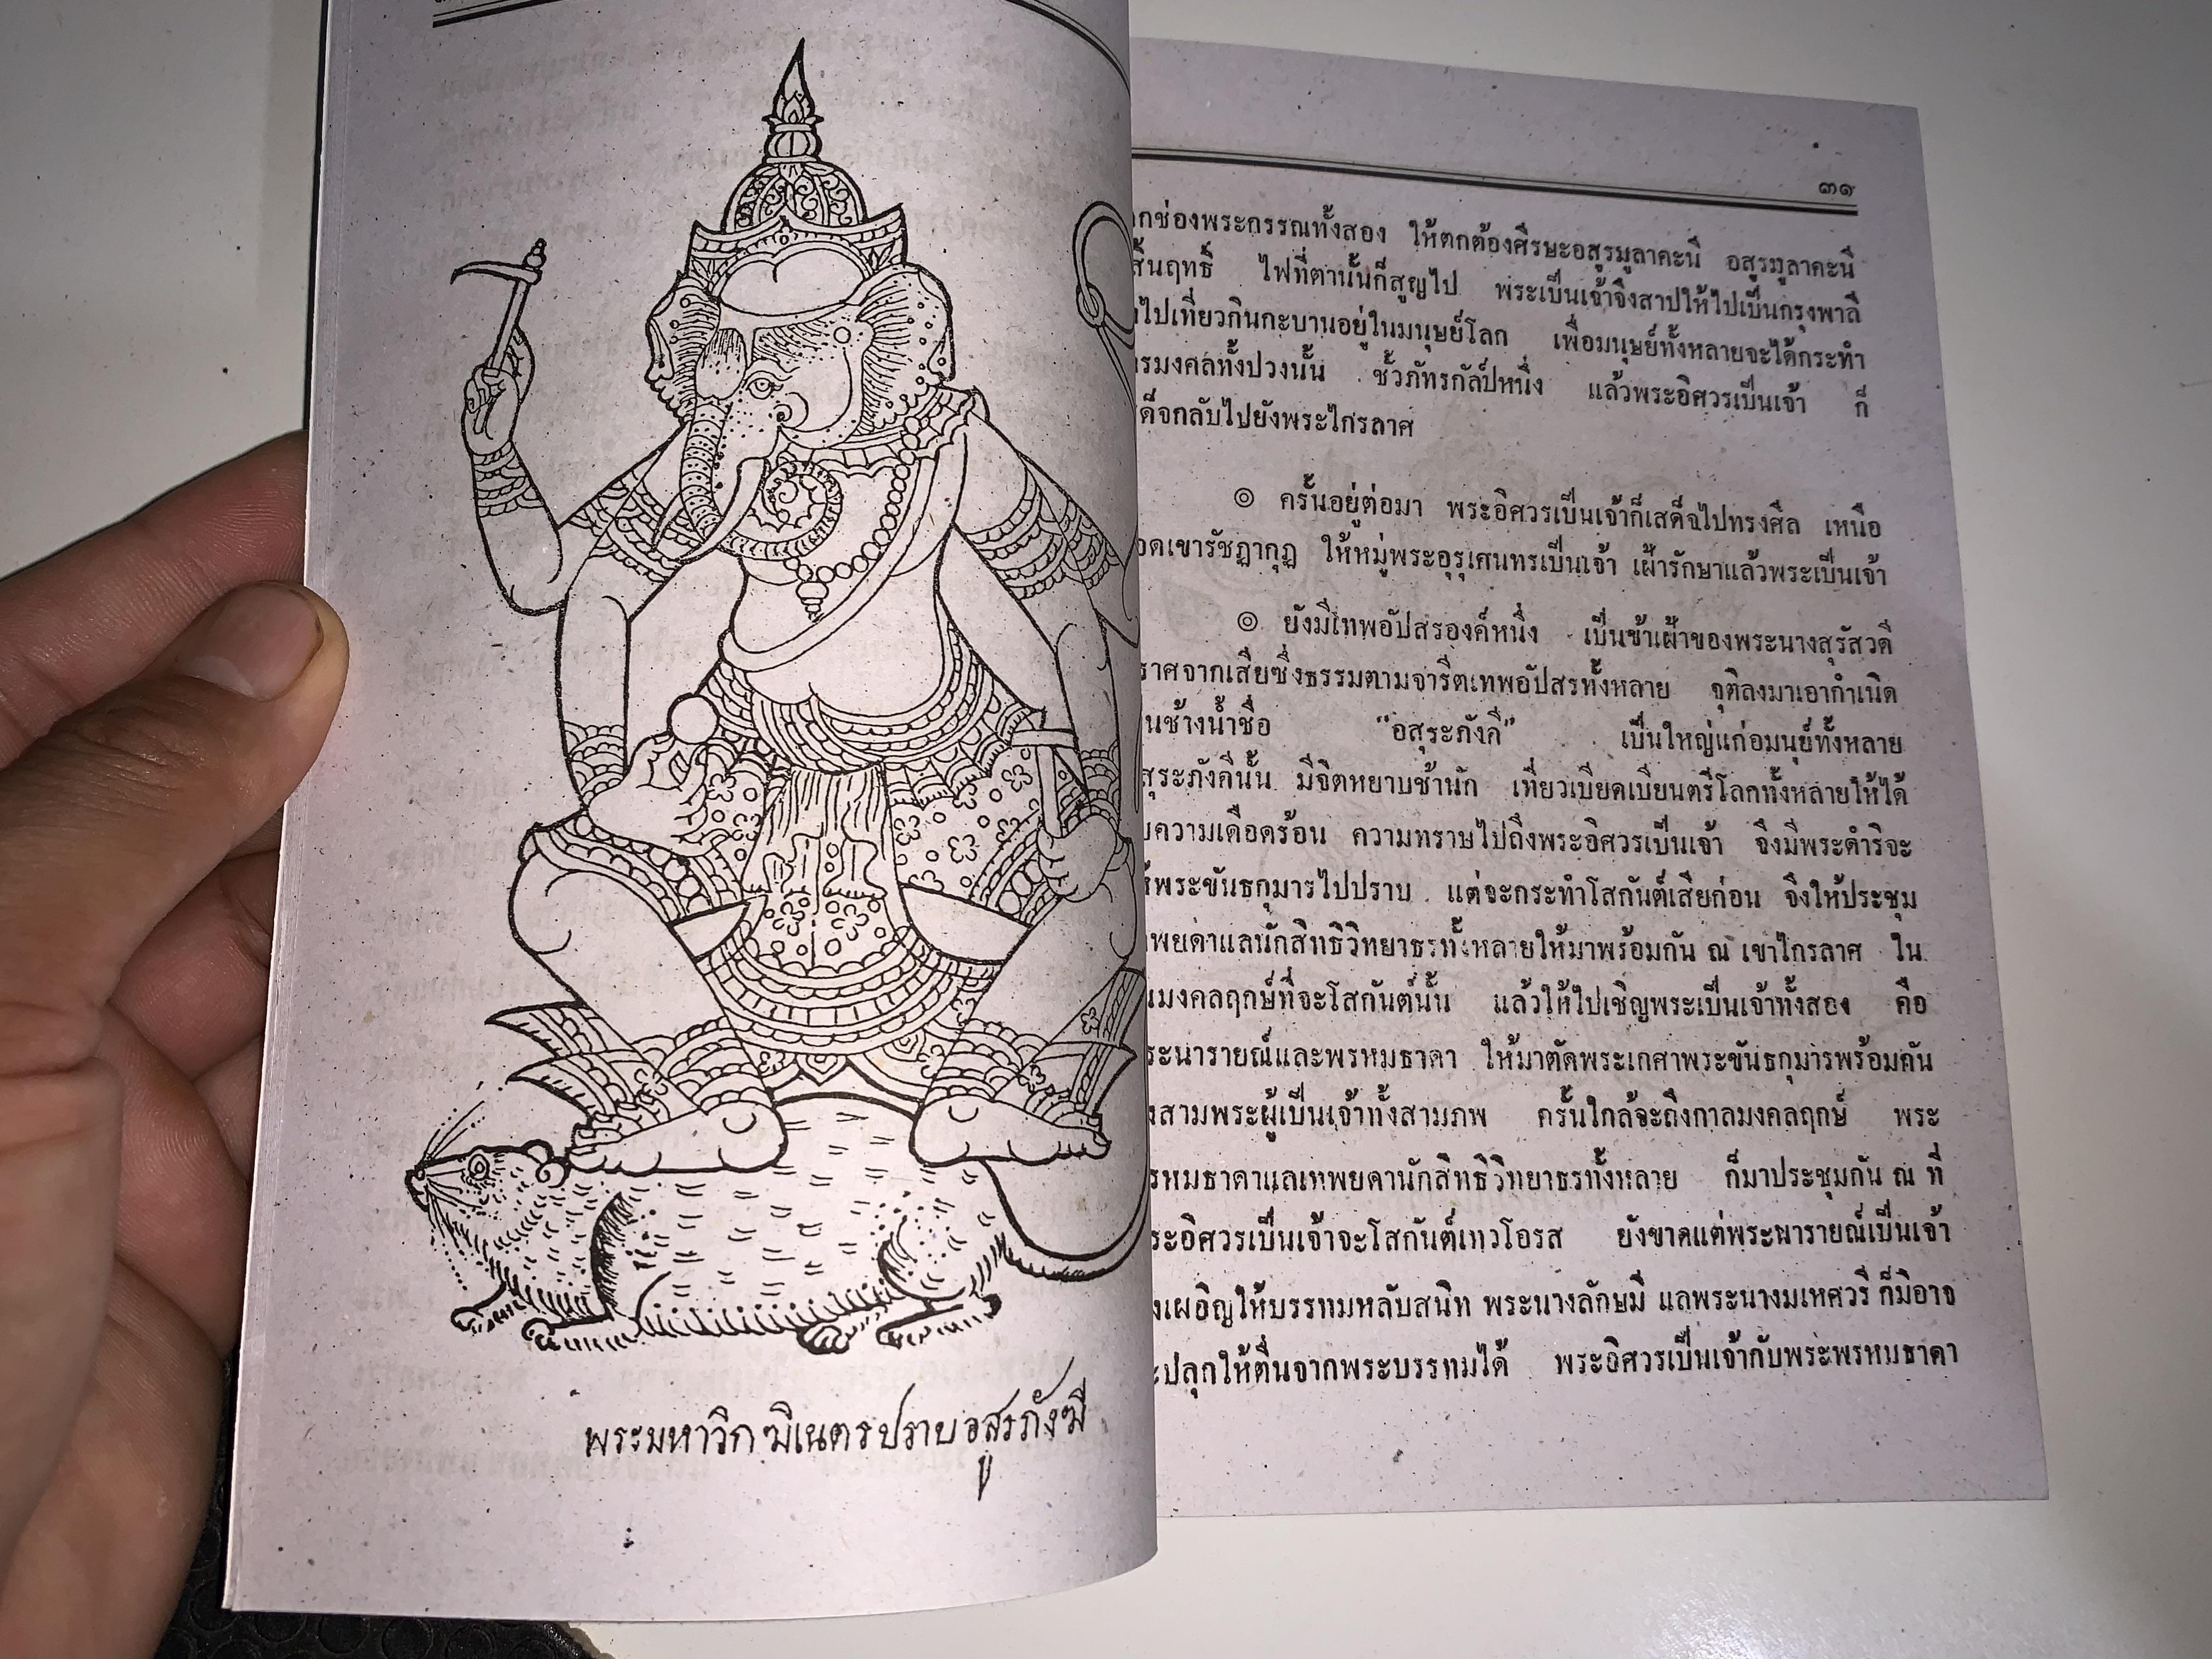 พระมหาวิกฆิเนตรปราบอสูรภังฆี
๓๑
ช่องพระกรรณทั้งสอง ให้ตกต้องศีรษะอสุรมูลาคะนี อสุรมูลาคะนี
สิ้นฤทธิ์ ไฟที่ตานั้นก็สูญไป พระเป็นเจ้าจึงสาปให้ไปเป็นกรุงพาลี
ไปเที่ยวกินกะบานอยู่ในมนุษย์โลก เพื่อมนุษย์ทั้งหลายจะได้กระทำ
มงคลทั้งปวงนั้น ชั่วภัทรกัลป์หนึ่ง แล้วพระอิศวรเป็นเจ้า ก็
กลับไปยังพระไกรลาศ
๏ ครั้นอยู่ต่อมา พระอิศวรเป็นเจ้าก็เสด็จไปทรงศีล เหนือ
เขารัชฎากุฏ ให้หมู่พระอุรุเคนทรเป็นเจ้า เฝ้ารักษาแล้วพระเป็นเจ้า
๏ ยังมีเทพอัปสรองค์หนึ่ง เป็นข้าเฝ้าของพระนางสุรัสวดี
ราศจากเสียซึ่งธรรมตามจารีตเทพอัปสรทั้งหลาย จุติลงมาเอากำเนิด
ช้างน้ำชื่อ "อสุระภังคี" เป็นใหญ่แก่อมนุย์ทั้งหลาย
สุระภังคีนั้น มีจิตหยาบช้านัก เที่ยวเบียดเบียนตรีโลกทั้งหลายให้ได้
ความเดือดร้อน ความทราบไปถึงพระอิศวรเป็นเจ้า จึงมีพระดำริจะ
พระขันธกุมารไปปราบ แต่จะกระทำโสกันต์เสียก่อน จึงให้ประชุม
พยดาแลนักสิทธิวิทยาธรทั้งหลายให้มาพร้อมกัน ณ เขาไกรลาศ ใน
มงคลฤกษ์ที่จะโสกันต์นั้น แล้วให้ไปเชิญพระเป็นเจ้าทั้งสอง คือ
ระนารายณ์และพรหมธาดา ให้มาตัดพระเกศาพระขันธกุมารพร้อมกัน
สามพระผู้เป็นเจ้าทั้งสามภพ ครั้นใกล้จะถึงกาลมงคลฤกษ์ พระ
รหมธาดาแลเทพยดานักสิทธิวิทยาธรทั้งหลาย ก็มาประชุมกัน ณ ที่
ระอิศวรเป็นเจ้าจะโสกันต์เทวโอรส ยังขาดแต่พระนารายณ์เป็นเจ้า
เผอิญให้บรรทมหลับสนิท พระนางลักษมี แลพระนางมเหศวรี ก็มิอาจ
ปลุกให้ตื่นจากพระบรรทมได้ พระอิศวรเป็นเจ้ากับพระพรหมธาดา